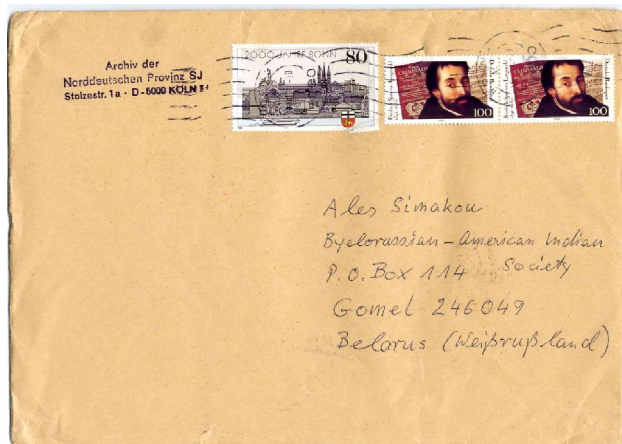 Archiv der
Norddeutschen Provinz SJ
Stolzestr. 1a · D-5000 KÖLN 1
2000 JAHRE BONN 80
100
100
Ales Simakou
Byelorussian-American Indian
Society
P.O. Box 114
Gomel 246049
Belarus (Weißrußland)